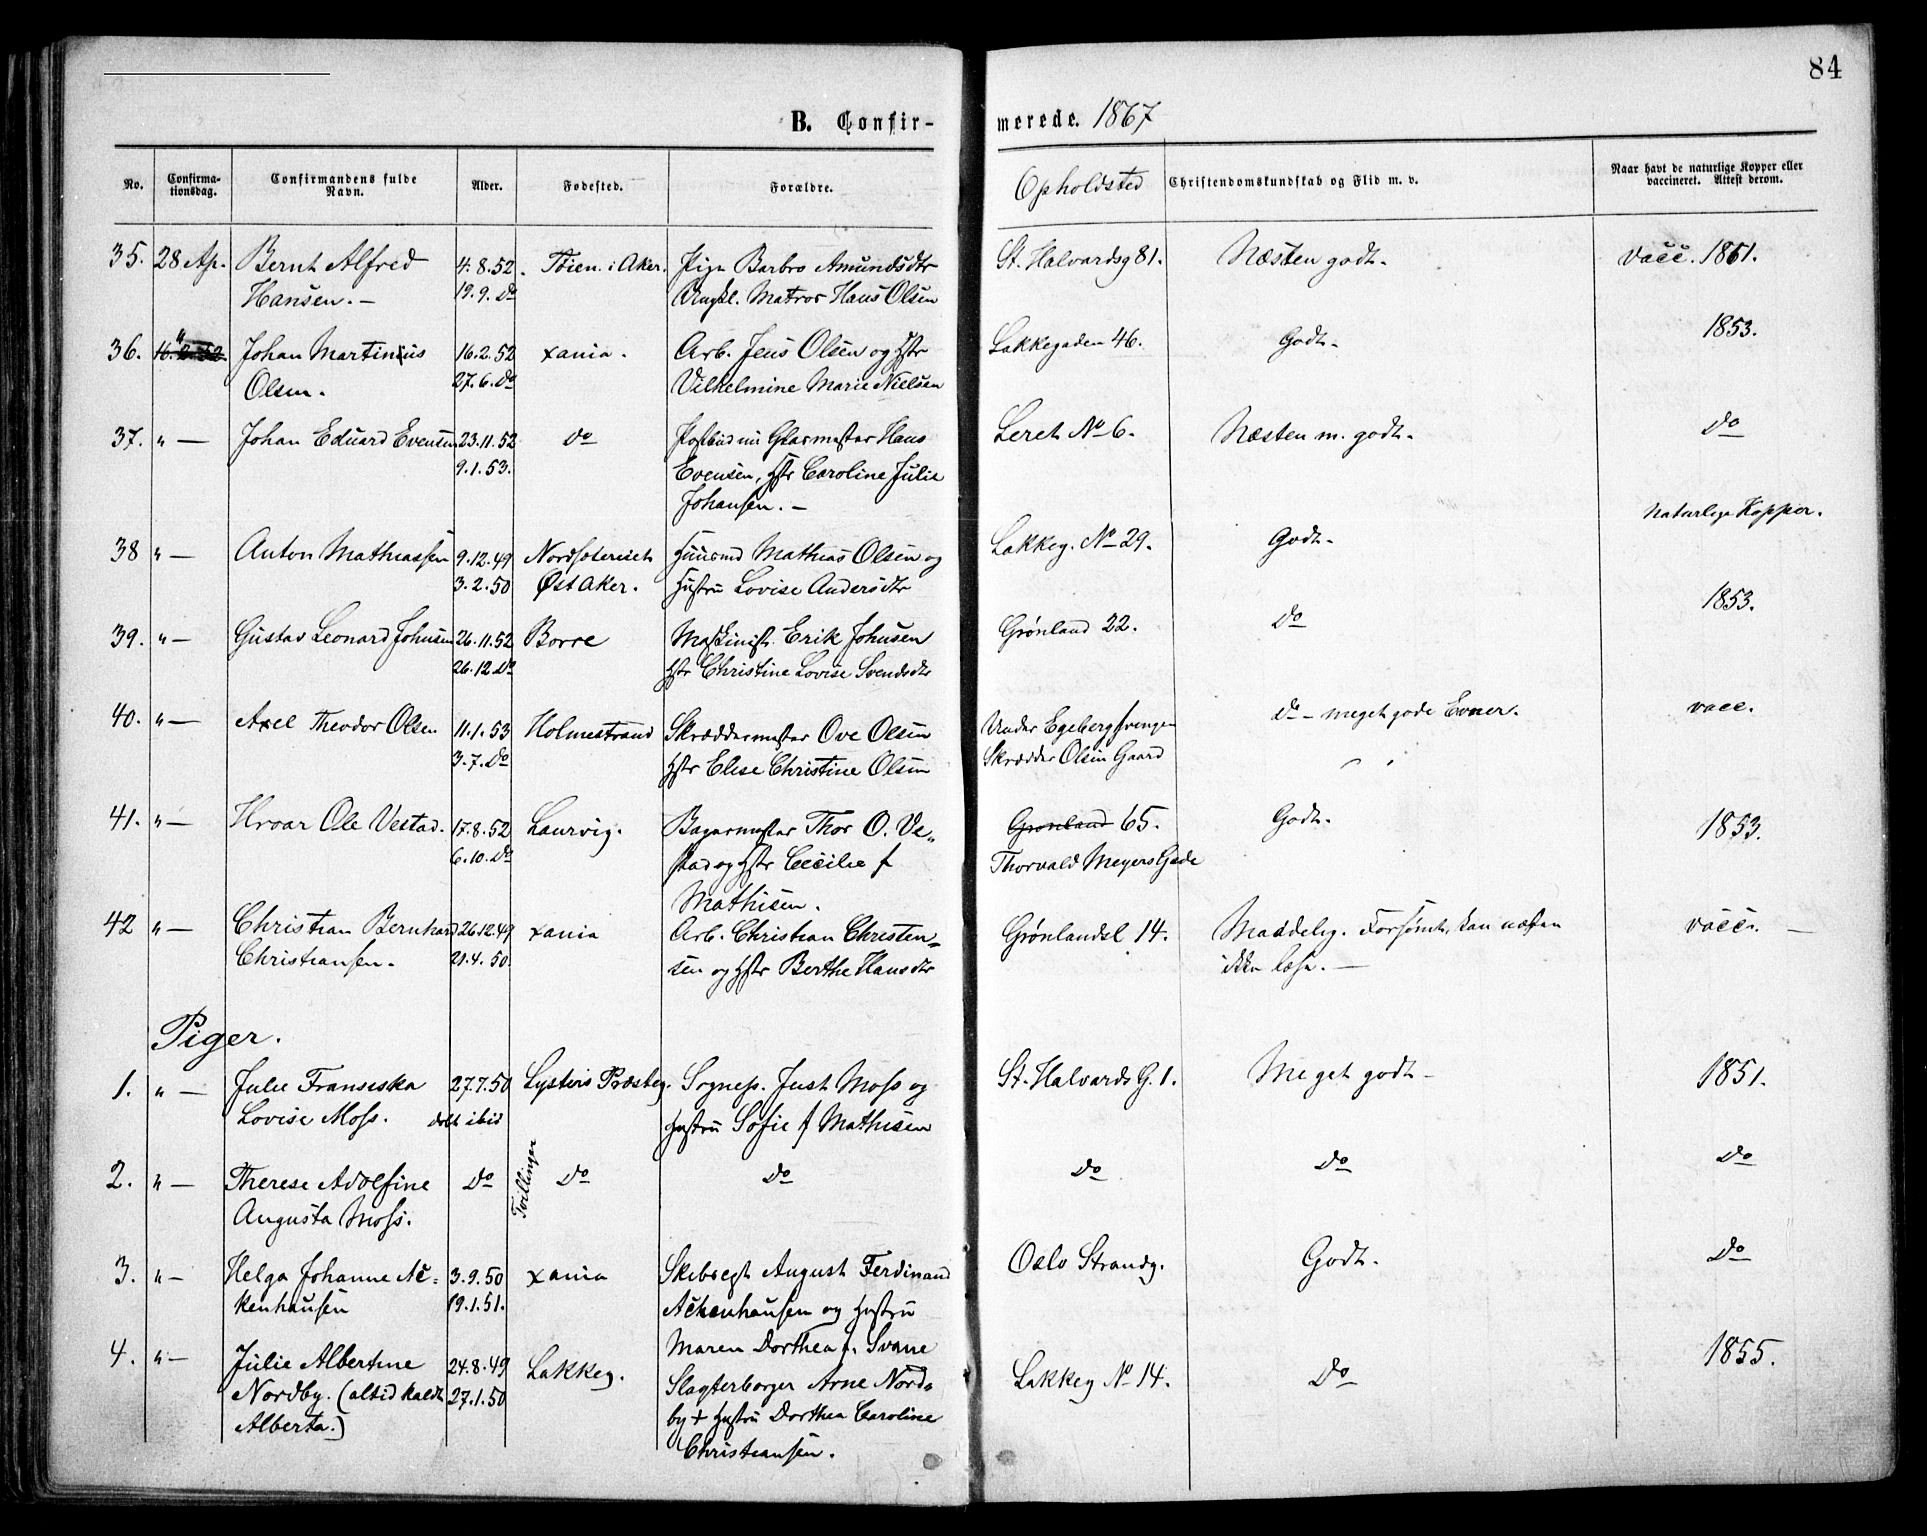 84
B. Confir-
merede. 1867
No.
Confirma-
tionsdag.
Confirmandens fulde
Navn.
Alder.
Fødested.
Forældre.
Opholdsted
Christendomskundskab og Flid m. v.
Naar havt de naturlige Kopper eller
vaccineret. Attest derom.
35. 28 Ap. Bernt Alfred 4.8.52. Töien i Aker. Pige Barbro Amundsdtr St. Halvardsg 81. Næsten godt. vacc. 1861.
Hansen. — 19.9. do Ungkl. Matros Hans Olsen
36. " 16.2.52. Johan Martinius 16.2.52 xania. Arb. Jens Olsen og Hstr Lakkegaden 46. Godt. 1853.
Olsen. 27.6. do Vilhelmine Marie Nielsen
37. " — Johan Eduard Evensen 23.11.52 do Postbud nu Glarmester Hans Leret No 6. Næsten m. godt. do
9.1.53. Evensen, Hstr Caroline Julie
Johansen. —
38 " — Anton Mathiassen 9.12.49 Huusmd Mathias Olsen og Lakkeg. No 29. Godt. Naturlige Kopper.
3.2.50 Øst Aker. Hustru Lovise Andersdtr
39. " — Gustav Leonard Johnsen 26.11.52 Borre Maskinist Erik Johnsen Grønland 22. do 1853.
26.12 do Hstr Christine Lovise Svendsdtr
40. " — Axel Theodor Olsen 11.1.53 Holmestrand Skræddermester Ove Olsen Under Egeberg do - meget gode Evner. vacc.
3.7. do Hstr Elise Christine Olsen Skrædder Olsen Gaard
41. " — Hroar Ole Vestad. 17.8.52 Laurvig. Bagermester Thor O. Ve- Grønland 65. Godt. 1853.
6.10. do stad og Hstr Cecilie f Thorvald Meyers Gade
Mathisen.
42 " — Christian Bernhard 26.12.49 xania Arb. Christian Christen- Grønlandsl 14. Maadelig. Forsømt, kan næsten vacc. —
Christiansen. 21.4.50. sen og Hstr Berthe Hansdtr ikke læse. —
Piger.
1. " — Julie Fransiska 27.7.50 Lysters Præsteg. Sognepr. Just Moss og St. Halvards G. 1. Meget godt — 1851.
Lovise Moss. døbt ibid Hustru Sofie f Mathisen
2. " — Therese Adolfine do Tvillinger do do do do do
Augusta Moss.
3. " — Helga Johanne Ac- 3.9.50 xania Skibsregt August Ferdinand Oslo Strandg. Godt. do
kenhausen 19.1.51. Ackenhausen og Hustru
Maren Dorthea f. Svane
4. " — Julie Albertine 24.8.49 Lakkeg. Slagterborger Arne Nord- Lakkeg No 14. do 1855.
Nordby. (altid kaldt 27.1.50 by + Hustru Dorthea Caroline
Alberta.) Christiansen.